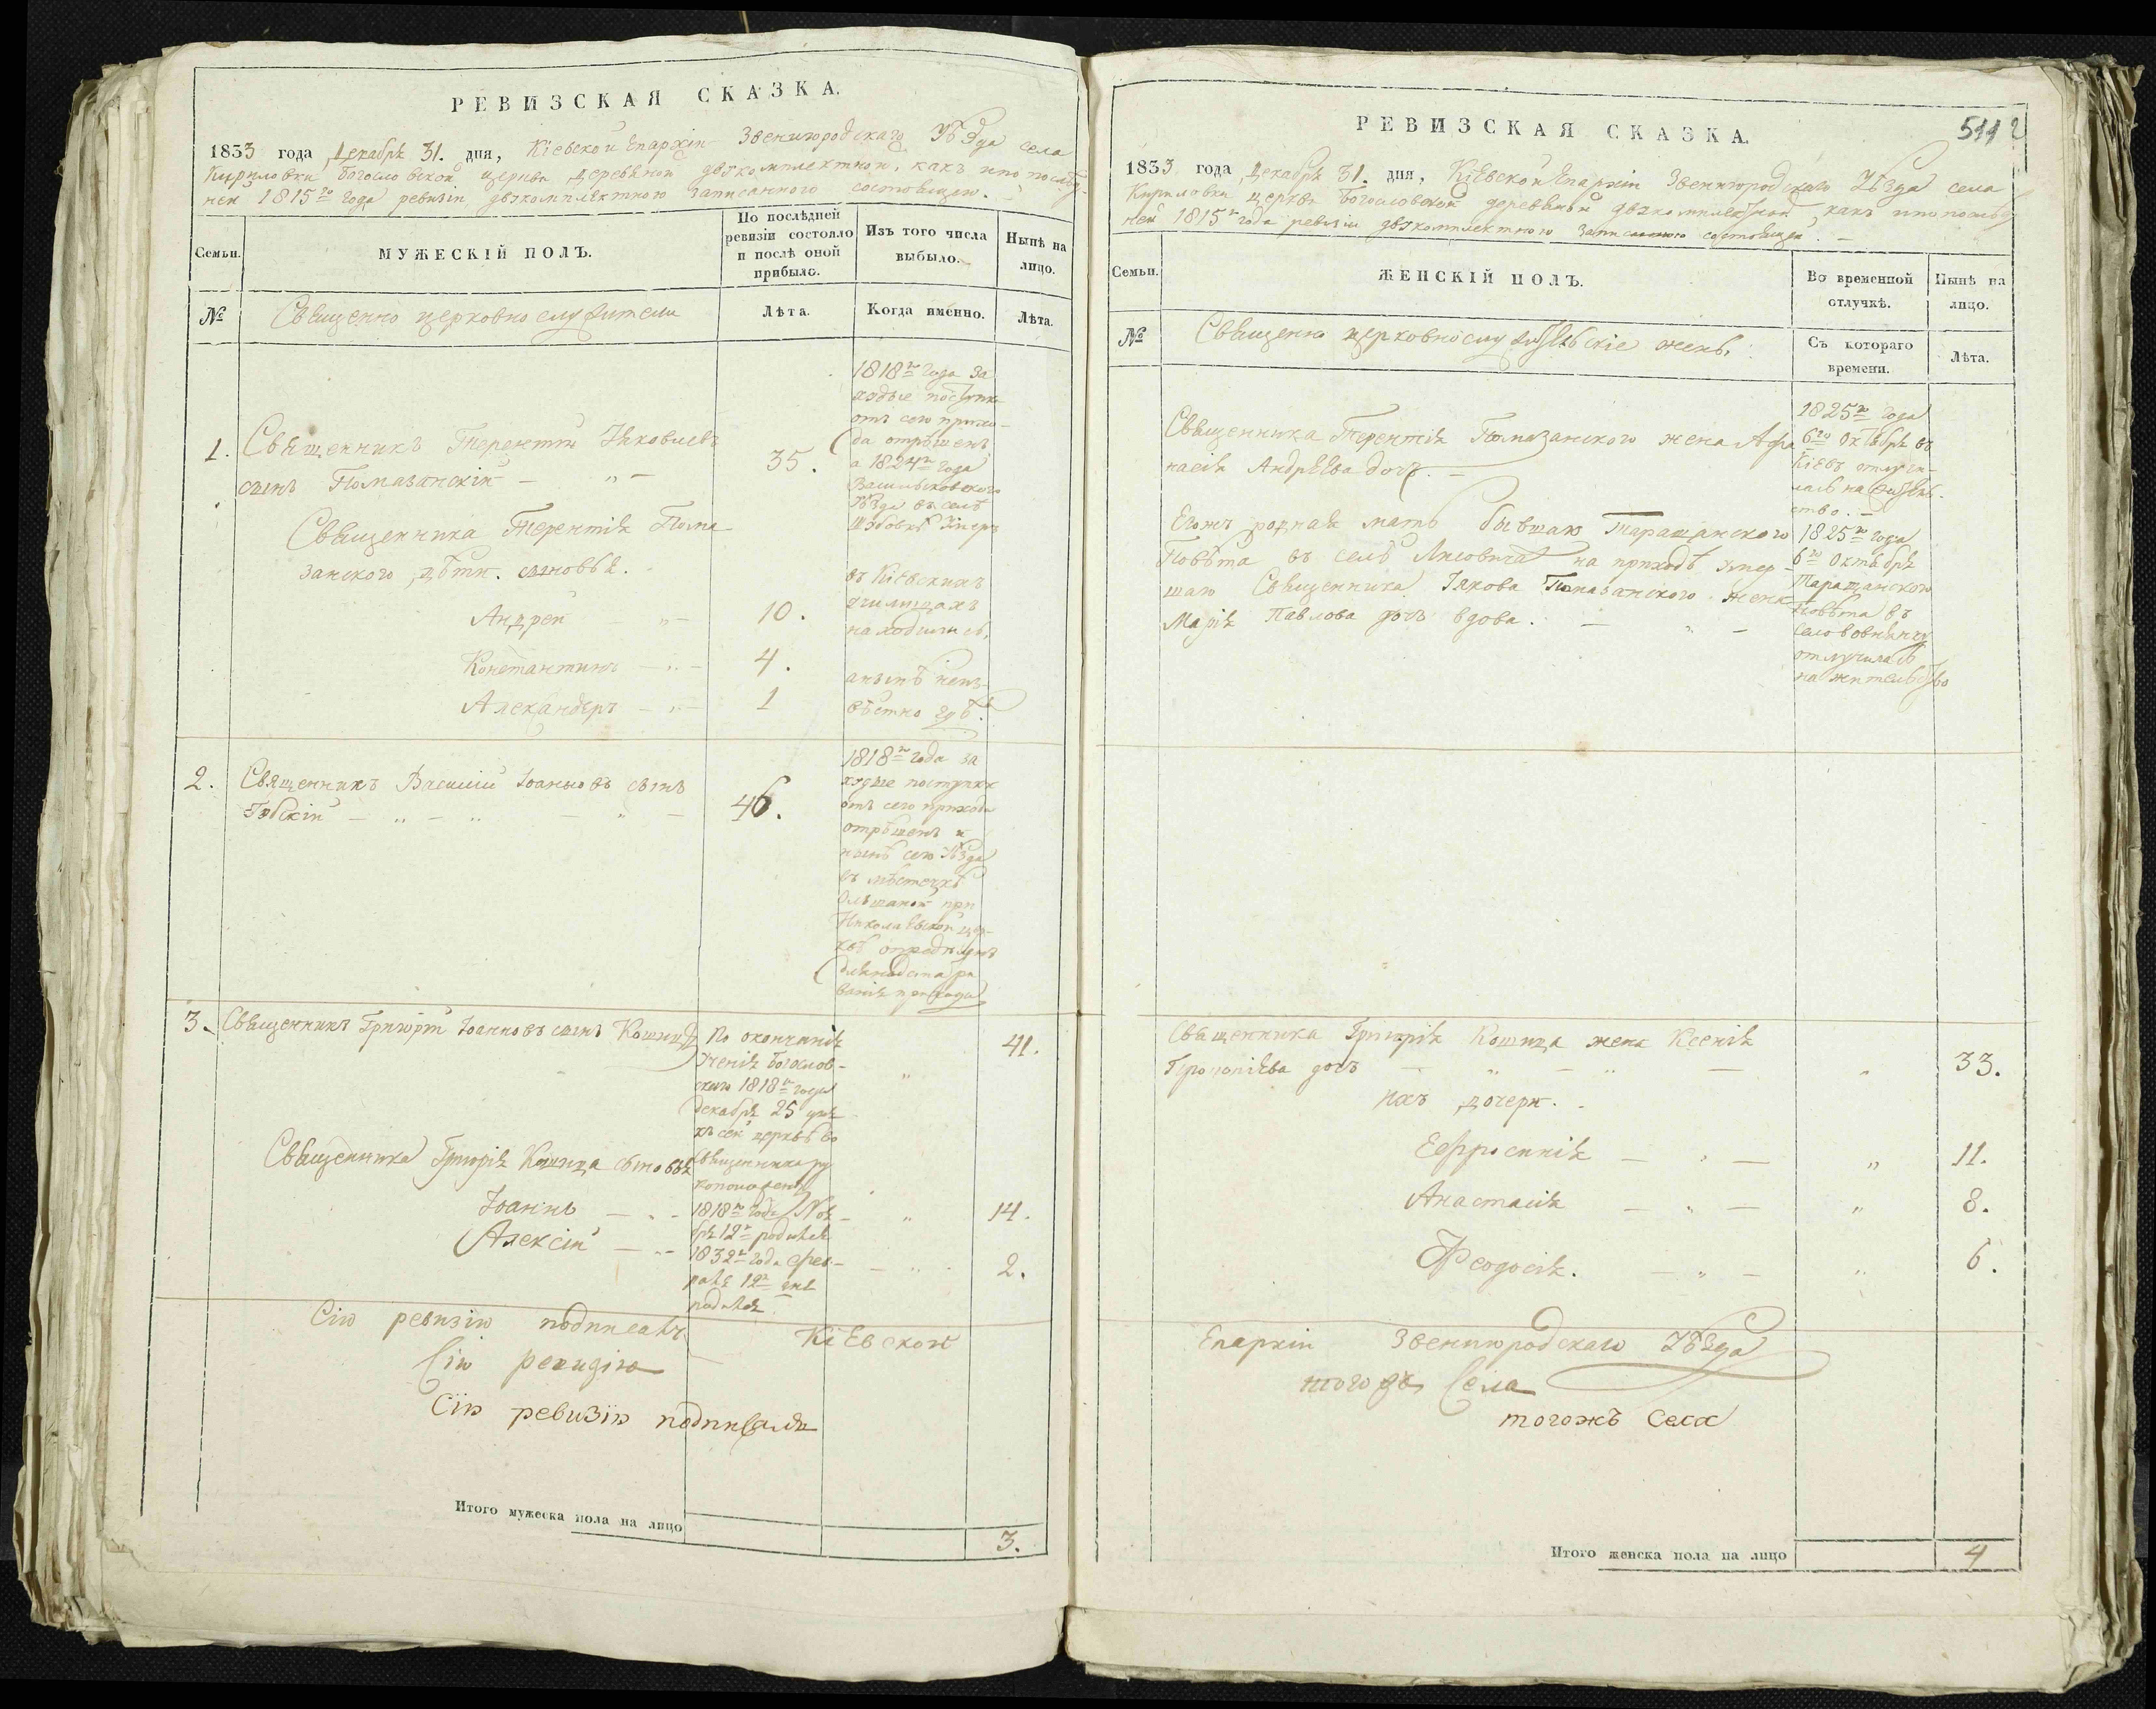 РЕВИЗСКАЯ СКАЗКА.
1833 года Декабря 31. дня, Кіевской Епархіи Звенигородскаго Уѣзда села
Кириловки Богословской церкви деревяной двокомплектной, какъ и по послѣд-
ней 1815го года ревизіи двокомплектною записанного состоящею.
Семьи.
МУЖЕСКІЙ ПОЛЪ.
По послѣдней
ревизіи состояло
и послѣ оной
прибыло.
Изъ того числа
выбыло.
Нынѣ на
лицо.
№
Священно церковно служители
Лѣта.
Когда именно.
Лѣта.
1.
Священникъ Терентій Іяковлевъ
сынъ Помазанскій — „ —
35.
1818го года за
худые поступки
отъ сего прихо-
да отрѣшенъ
а 1824го года
Васильковского
Уѣзда въ селѣ
умеръ
Священника Терентія Пома-
занского дѣти. сыновья.
Андрей — „ —
10.
Константинъ — „ —
4.
Александръ — „ —
1
въ Кіевскихъ
училищахъ
находились,
а нынѣ неиз-
вѣстно гдѣ.
2.
Священникъ Василій Іоанновъ сынъ
Губскій — „ — „ — „ —
46.
1818го года за
худые поступки
отъ сего прихода
отрѣшенъ и
нынѣ сего Уѣзда
въ мѣстечкѣ
Ольшаной при
Николаевской цер-
квѣ опредѣленъ
прихода
3.
Священникъ Григорій Іоанновъ сынъ Кошица
По окончаніи
Ученія богослов-
скаго 1818го года
декабря 25 дня
къ сей церквѣ во
священника ру
коположенъ
„
41.
Священника Григорія Кошица сыновья
Іоаннъ — „ —
1818го года Ноя-
бря 12го родился
„
14.
Алексій — „ —
1832го года Фев-
раля 12го дня
родился
— „ —
2.
Сію ревизію подписалъ Кіевской
Сію ревизію
Сію ревизію подписали
Итого мужеска пола на лицо
3.
РЕВИЗСКАЯ СКАЗКА.
511 2
1833 года Декабря 31. дня, Кіевской Епархіи Звенигородскаго Уѣзда села
Кириловки церкви Богословской деревяной двокомплектной, какъ и по послѣд
ней 1815го года ревизіи двокомплектною записанною состоящей. —
Семьи.
ЖЕНСКІЙ ПОЛЪ.
Во временной
отлучкѣ.
Нынѣ на
лицо.
№
Священно церковнослужительскіе жены.
Съ котораго
времени.
Лѣта.
Священника Терентія Помазанского жена Афа
насія Андреева дочъ. —
1825го года
6го Октября въ
Кіевъ отлучи-
лась на жител-
ство. —
Егожъ родная мать бывшаго Таращанского
Повѣта въ селѣ Лисовичахъ на приходѣ умер-
шаго Священника Іякова Помазанского жена
Марія Павлова дочъ вдова. — „ —
1825го года
6го Октября
Таращанского
Повѣта въ
село
отлучилась
на жительство
Священника Григорія Кошица жена Ксенія
Прокопіева дочъ — „ — „ —
„
33.
ихъ дочери. —
Евфросинія — „ —
„
11.
Анастасія — „ —
„
8.
Феодосія. — „ —
„
6.
Епархіи Звенигородскаго Уѣзда
тогожъ Села
тогожъ Села
Итого женска пола на лицо
4